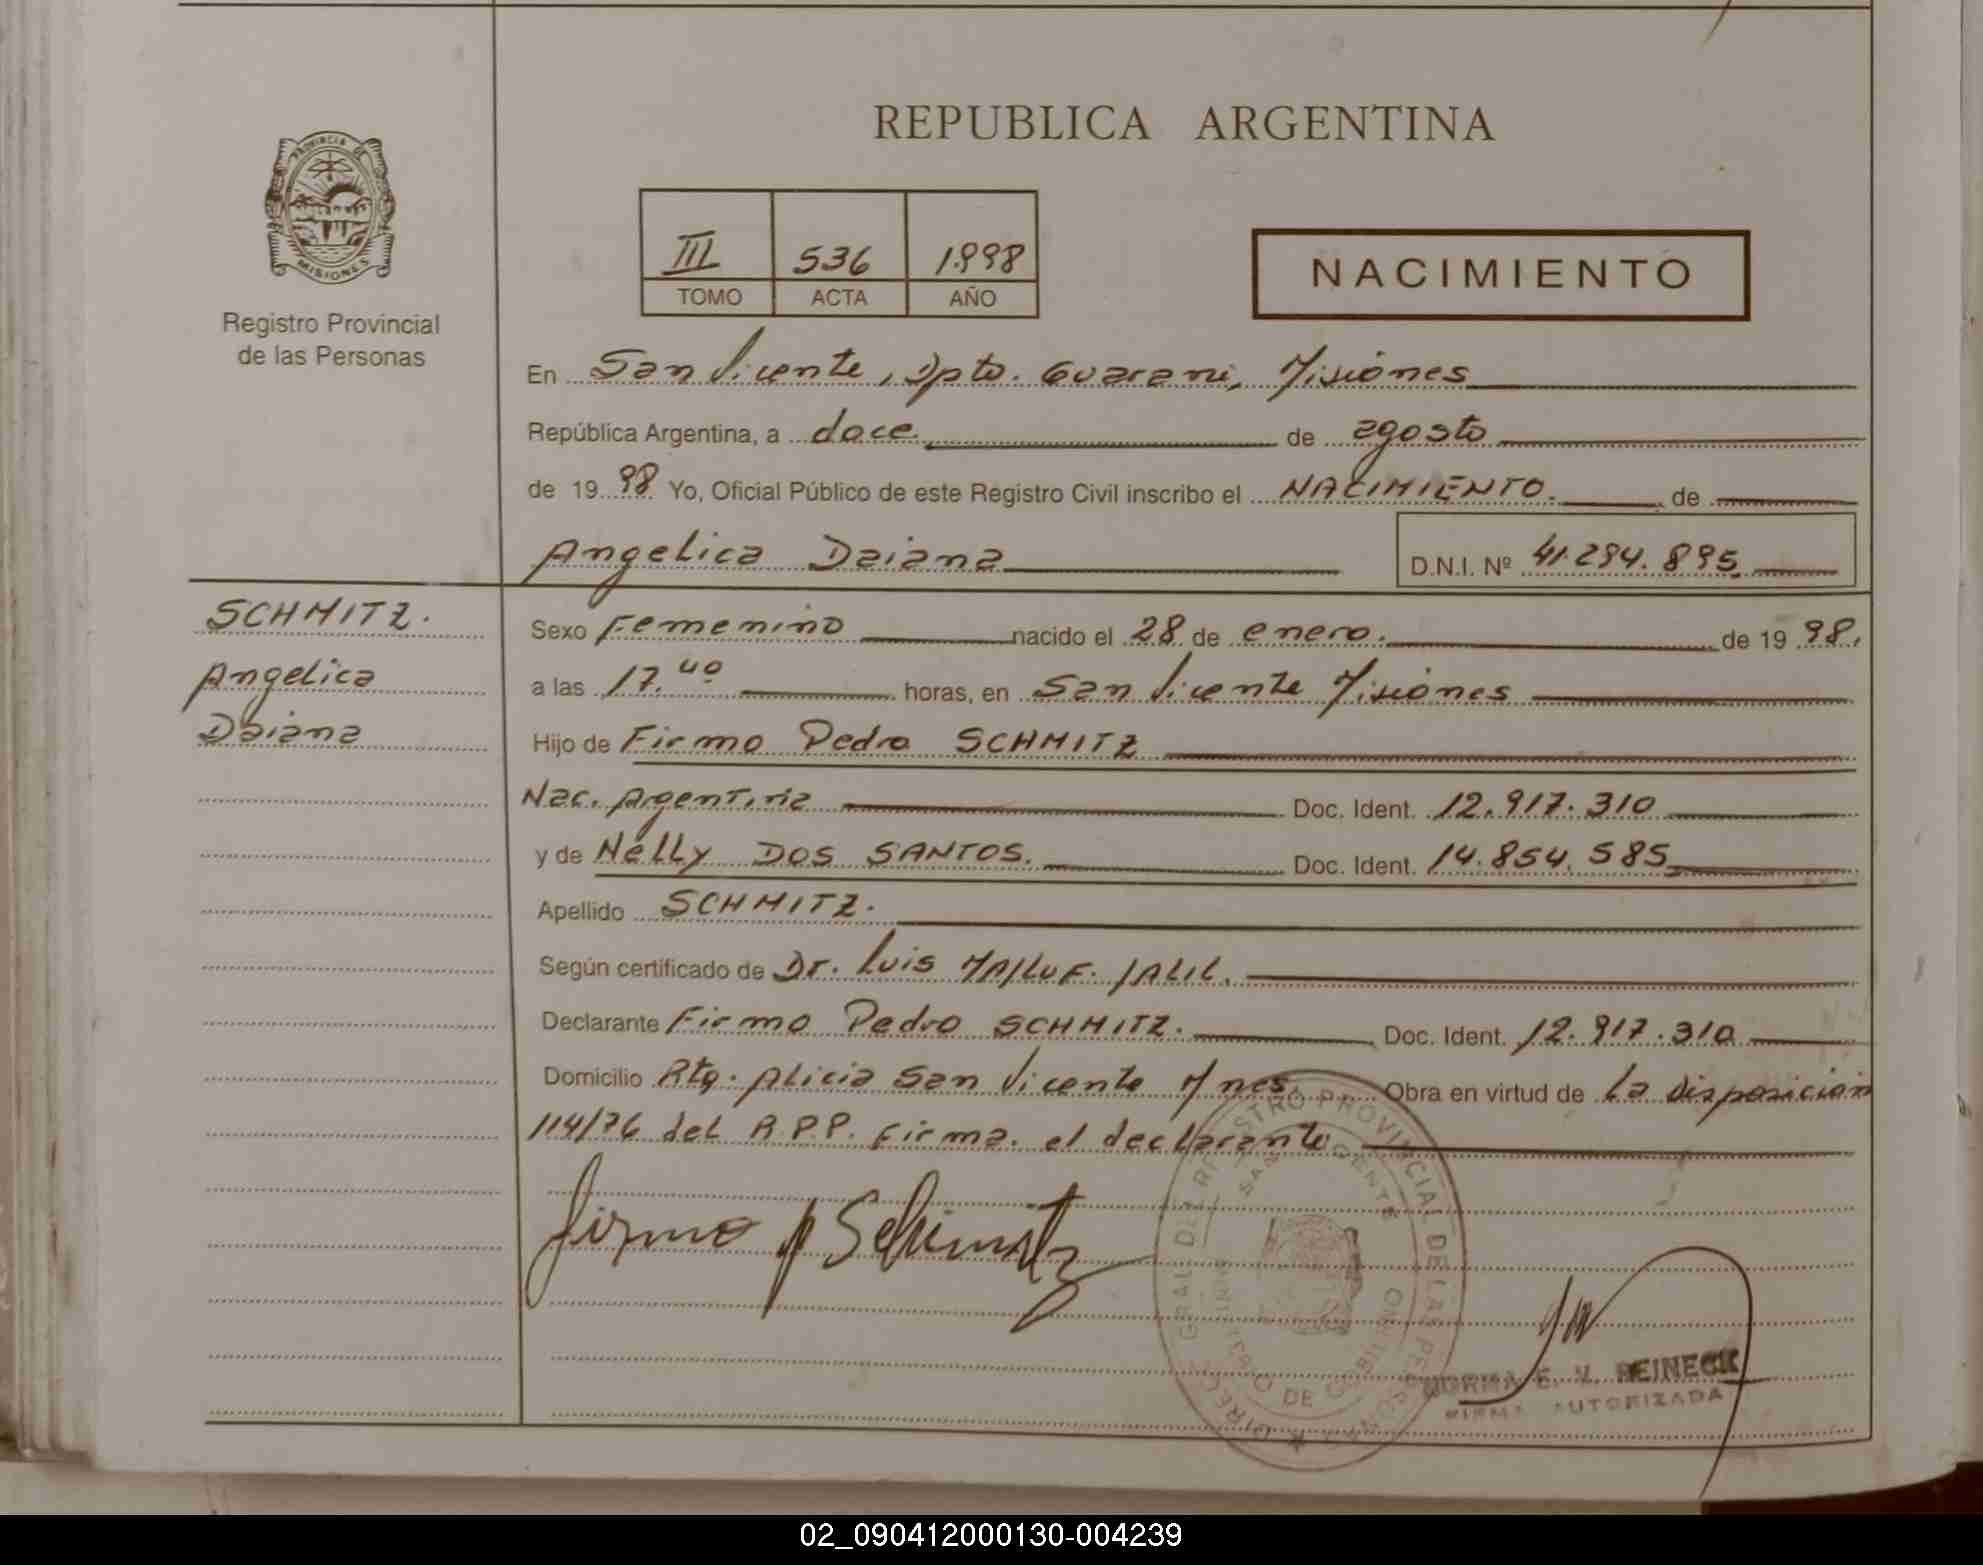 REPUBLICA ARGENTINA
PROVINCIA DE
MISIONES
Registro Provincial
de las Personas
III 536 1.998
TOMO ACTA AÑO
NACIMIENTO
En San Vicente, Dpto. Guarani, Misiones
República Argentina, a doce de agosto
de 19 98 Yo, Oficial Público de este Registro Civil inscribo el NACIMIENTO. de
Angelica Daiana D.N.I. Nº 41.294.895
SCHMITZ.
Angelica
Daiana
Sexo Femenino nacido el 28 de enero. de 19 98.
a las 17.40 horas, en San Vicente Misiones
Hijo de Firmo Pedro SCHMITZ
Nac. Argentina Doc. Ident. 12.917.310
y de Nelly DOS SANTOS. Doc. Ident. 14.854.585
Apellido SCHMITZ.
Según certificado de Dr. Luis MAJLUF. JALIL.
Declarante Firmo Pedro SCHMITZ. Doc. Ident. 12.917.310
Domicilio Rtq. Alicia San Vicente Mnes Obra en virtud de La Disposicion
114/76 del R.P.P. Firma. el declarante
Firmo P Schmitz
PROVINCIAL DE LAS PERSONAS
SAN VICENTE
DE GOBIERNO
NORMA E. V. REINECK
FIRMA AUTORIZADA
02_090412000130-004239